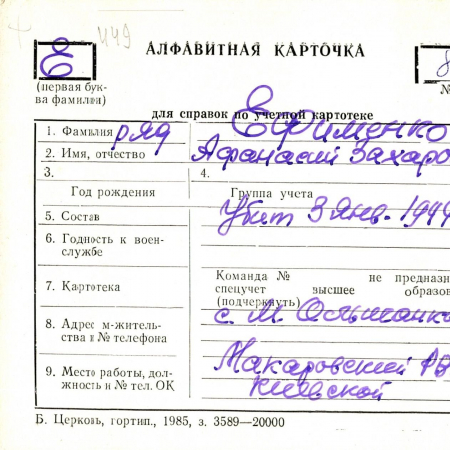 449
АЛФАВИТНАЯ КАРТОЧКА
Е
8
(первая бук-
ва фамилии)
№
для справок по учетной картотеке
1. Фамилия ряд Ефименко
2. Имя, отчество Афанасий Захаро
3. 4.
Год рождения Группа учета
5. Состав Убит 3 янв. 1944
6. Годность к воен-
службе
Команда № не предназн
7. Картотека спецучет высшее образов
(подчеркнуть)
8. Адрес м-житель- с. М. Ольшанка
ства и № телефона
Макаровский
9. Место работы, дол-
жность и № тел. ОК Киевской
Б. Церковь, гортип., 1985, з. 3589—20000